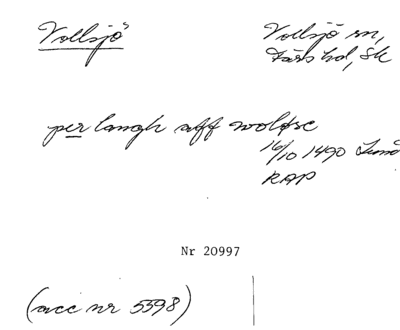 Vollsjö
Vollsjö sn,
Färs hd, Sk
per langh aff wolfsc
16/10 1490 Lund
RAP
Nr 20997
(acc nr 5598)